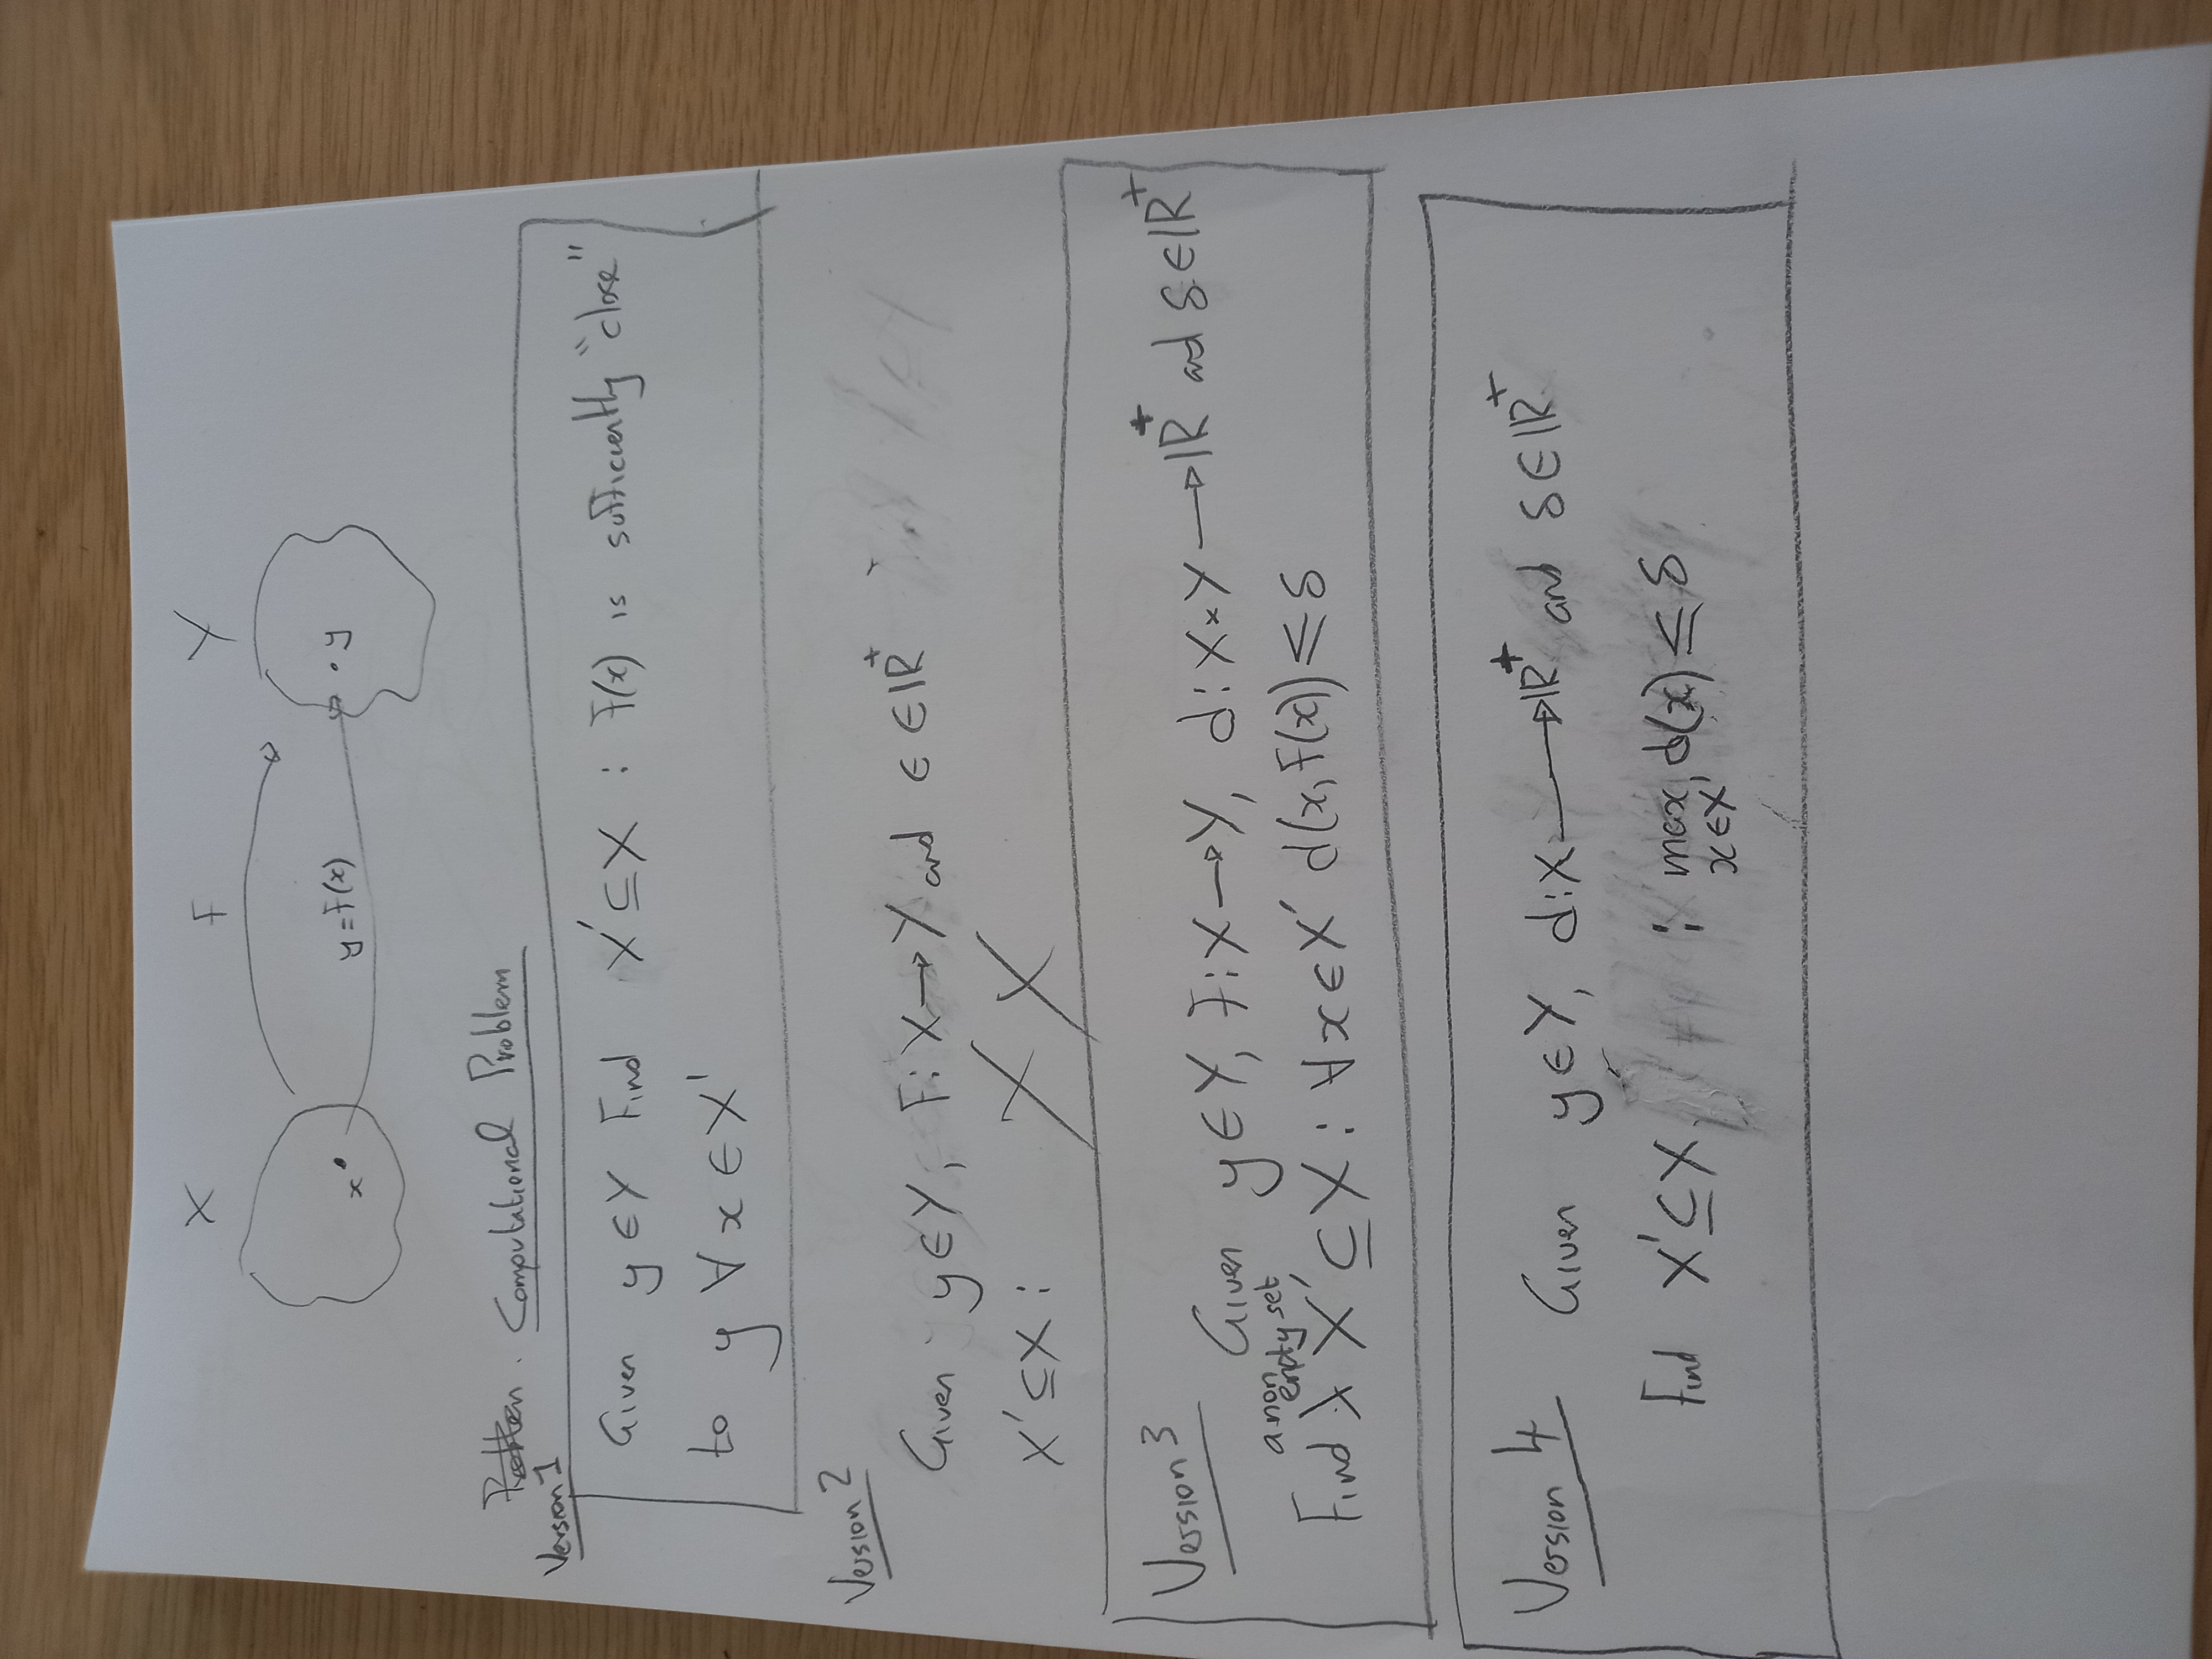 X F Y
x y=F(x) y
Computational Problem
Version 1
Given y ∈ Y Find X' ⊆ X : F(x) is sufficiently "close"
to y ∀ x ∈ X'
Version 2
Given y ∈ Y, F: X → Y and ϵ ∈ ℝ⁺
X' ⊆ X :
Version 3
Given y ∈ Y, F: X → Y, d: X × Y → ℝ⁺ and δ ∈ ℝ⁺
a non
empty set
Find X' ⊆ X : ∀ x ∈ X' d(x, F(x)) ≤ δ
Version 4 Given y ∈ Y, d: X → ℝ⁺ and δ ∈ ℝ⁺
Find X' ⊆ X : max d(x) ≤ δ
x ∈ X'